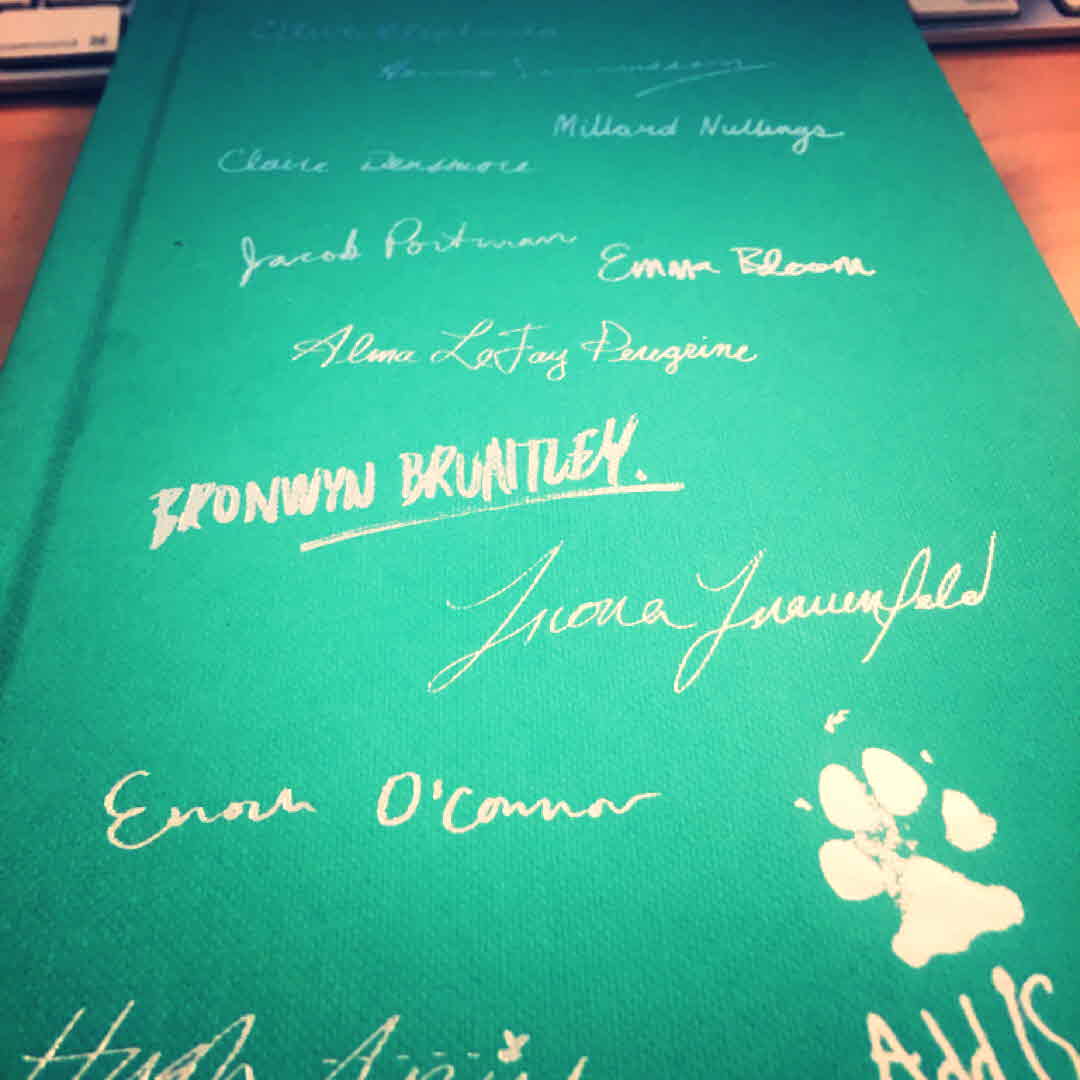 Millard Nullings
Claire Densmore
Jacob Portman
Emma Bloom
Alma LeFay Peregrine
BRONWYN BRUNTLEY.
Fiona Frauenfeld
Enoch O'Connor
Hugh
Addis